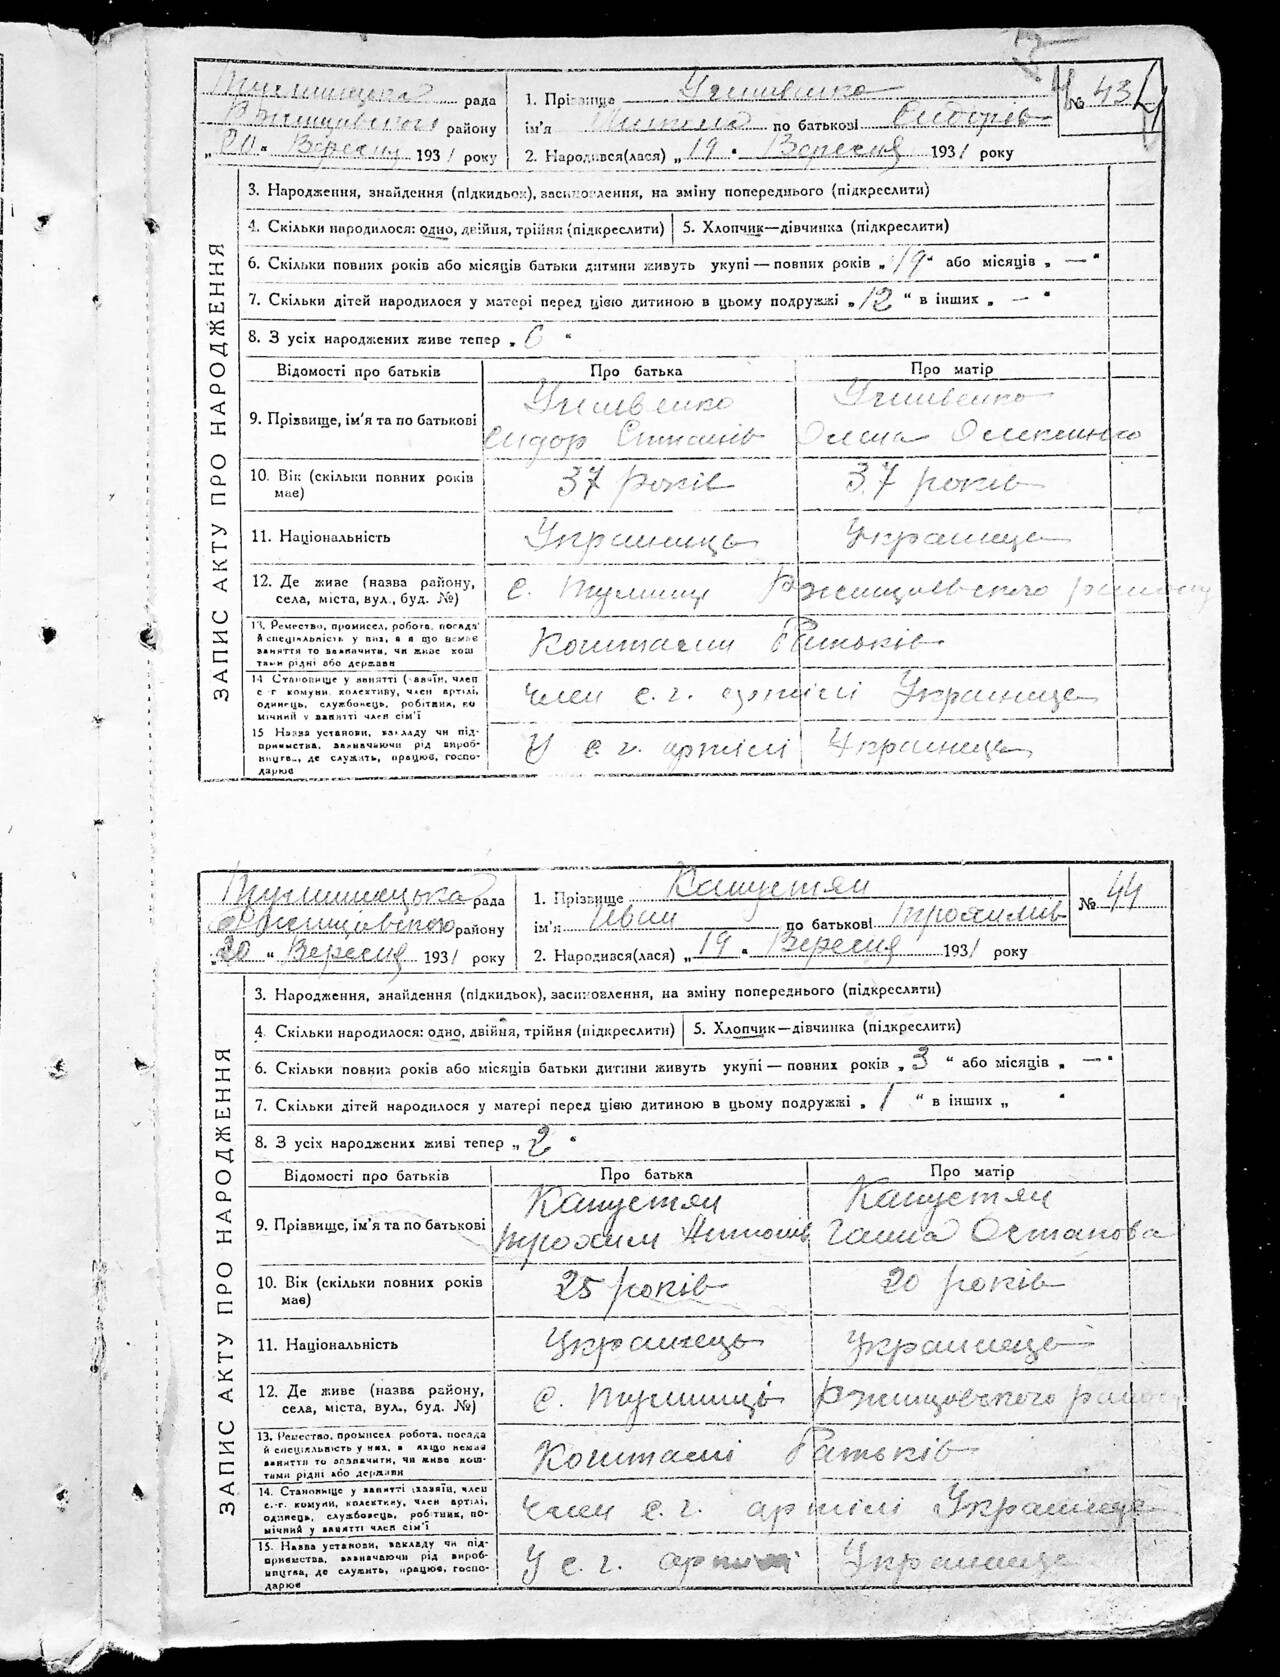 рада
району
„20“ Вересня 1931 року
1. Прізвище
ім'я по батькові Сидорів
2. Народився(лася) „19“ Вересня 1931 року
№ 43
ЗАПИС АКТУ ПРО НАРОДЖЕННЯ
3. Народження, знайдення (підкидьок), засиновлення, на зміну попереднього (підкреслити)
4. Скільки народилося: одно, двійня, трійня (підкреслити) 5. Хлопчик—дівчинка (підкреслити)
6. Скільки повних років або місяців батьки дитини живуть укупі — повних років „19“ або місяців „—“
7. Скільки дітей народилося у матері перед цією дитиною в цьому подружжі „12“ в інших „—“
8. З усіх народжених живе тепер „6“
Відомості про батьків Про батька Про матір
9. Прізвище, ім'я та по батькові
Сидор
10. Вік (скільки повних років має) 37 років 37 років
11. Національність Украинець Украинець
12. Де живе (назва району, села, міста, вул., буд. №) с. Ржищевского району
13. Ремество, промисел, робота, посада й спеціяльність у них, а якщо немає заняття то зазначити, чи живе коштами рідні або держави
Коштами Батьків
14. Становище у занятті (хазяїн, член с.-г. комуни, колективу, член артілі, одинець, службовець, робітник, помічний у занятті член сім'ї
член с. г. артілі Украинець
15. Назва установи, закладу чи підприємства, зазначаючи рід виробництва, де служить, працює, господарює
У с. г. артілі Украинець
рада
Ржищівського району
„20“ Вересня 1931 року
1. Прізвище Капустян
ім'я Іван по батькові Трохимів
2. Народився(лася) „19“ Вересня 1931 року
№ 44
ЗАПИС АКТУ ПРО НАРОДЖЕННЯ
3. Народження, знайдення (підкидьок), засиновлення, на зміну попереднього (підкреслити)
4. Скільки народилося: одно, двійня, трійня (підкреслити) 5. Хлопчик—дівчинка (підкреслити)
6. Скільки повних років або місяців батьки дитини живуть укупі — повних років „3“ або місяців „—“
7. Скільки дітей народилося у матері перед цією дитиною в цьому подружжі „1“ в інших „ “
8. З усіх народжених живі тепер „2“
Відомості про батьків Про батька Про матір
9. Прізвище, ім'я та по батькові
Капустян Капустян
Трохим Антонів Ганна Остапова
10. Вік (скільки повних років має) 25 років 20 років
11. Національність Украинець Украинець
12. Де живе (назва району, села, міста, вул., буд. №) с. Ржищовского району
13. Ремество, промисел, робота, посада й спеціяльність у них, а якщо немає заняття то зазначити, чи живе коштами рідні або держави
Коштами Батьків
14. Становище у занятті (хазяїн, член с.-г. комуни, колективу, член артілі, одинець, службовець, робітник, помічний у занятті член сім'ї
член с. г. артілі Украинець
15. Назва установи, закладу чи підприємства, зазначаючи рід виробництва, де служить, працює, господарює
У с. г. артілі Украинець